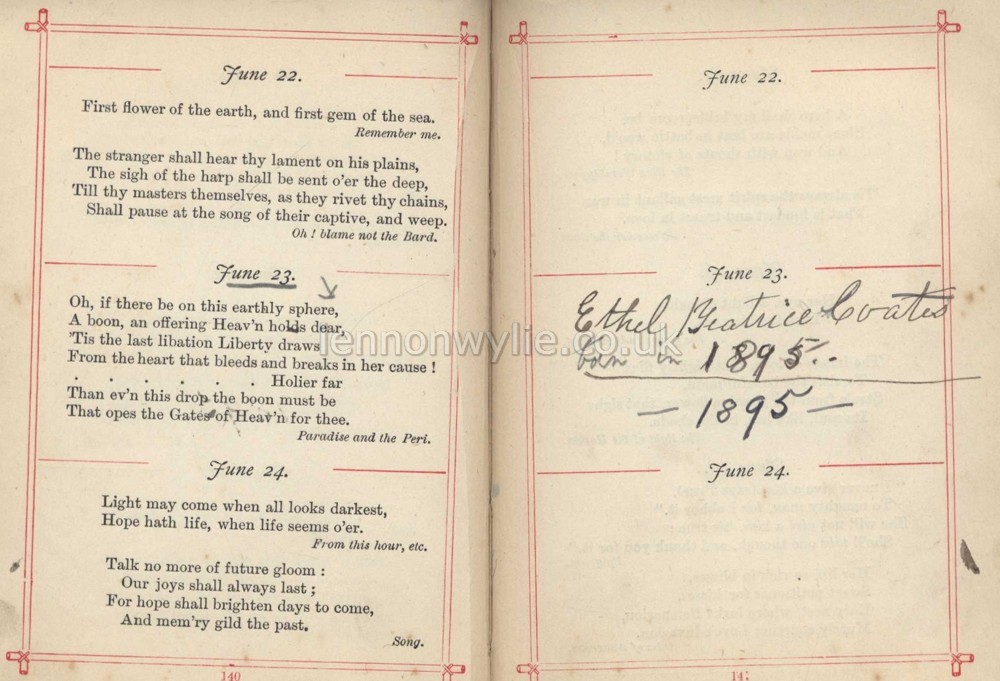 June 22.
First flower of the earth, and first gem of the sea.
Remember me.
The stranger shall hear thy lament on his plains,
The sigh of the harp shall be sent o'er the deep,
Till thy masters themselves, as they rivet thy chains,
Shall pause at the song of their captive, and weep.
Oh! blame not the Bard.
June 23.
Oh, if there be on this earthly sphere,
A boon, an offering Heav'n holds dear,
'Tis the last libation Liberty draws
From the heart that bleeds and breaks in her cause!
. . . . . . . Holier far
Than ev'n this drop the boon must be
That opes the Gates of Heav'n for thee.
Paradise and the Peri.
June 24.
Light may come when all looks darkest,
Hope hath life, when life seems o'er.
From this hour, etc.
Talk no more of future gloom:
Our joys shall always last;
For hope shall brighten days to come,
And mem'ry gild the past.
Song.
140
June 22.
June 23.
Ethel Beatrice Coates
born in 1895..
— 1895 —
June 24.
lennonwylie.co.uk